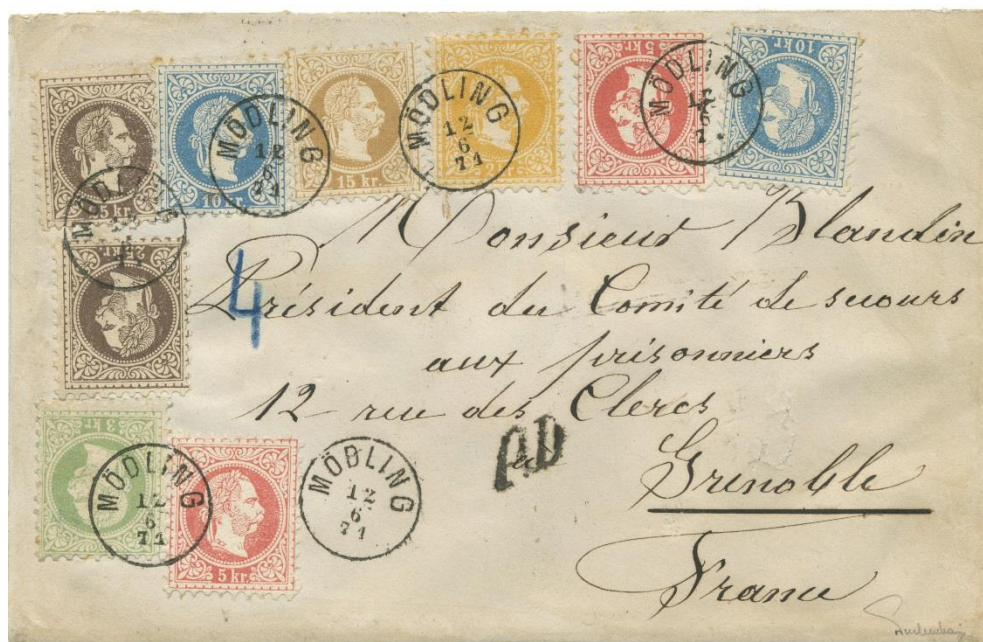 5 kr.
10 kr.
15 kr.
5 kr.
10 kr.
MÖDLING
12
6
71
MÖDLING
12
6
71
MÖDLING
12
6
7
MÖDLING
Monsieur Blandin
Président du Comité de secours
4
aux prisonniers
12 rue des Clercs
PD
Grenoble
France
3 kr.
MÖDLING
12
6
71
5 kr.
MÖDLING
12
6
71